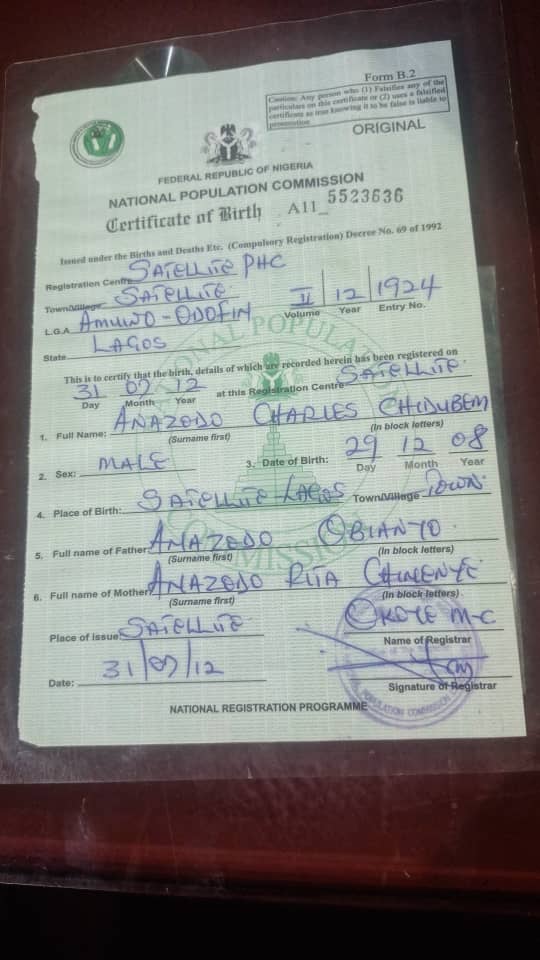 Form B.2
Caution: Any person who (1) Falsifies any of the
particulars on this certificate or (2) uses a falsified
certificate as true knowing it to be false is liable to
prosecution
ORIGINAL
FEDERAL REPUBLIC OF NIGERIA
NATIONAL POPULATION COMMISSION
Certificate of Birth A11_ 5523636
Issued under the Births and Deaths Etc. (Compulsory Registration) Decree No. 69 of 1992
Registration Centre SATELLITE PHC
Town/Village SATELLITE
L.G.A AMUWO-ODOFIN II 12 1924
Volume Year Entry No.
State LAGOS
This is to certify that the birth, details of which are recorded herein has been registered on
31 07 12 at this Registration Centre SATELLITE
Day Month Year
1. Full Name: ANAZODO CHARLES CHIDUBEM
(Surname first) (In block letters)
2. Sex: MALE 3. Date of Birth: 29 12 08
Day Month Year
4. Place of Birth: SATELLITE LAGOS Town/Village TOWN
5. Full name of Father ANAZODO OBIANYO
(Surname first) (In block letters)
6. Full name of Mother ANAZODO RITA CHINENYE
(Surname first) (In block letters)
Place of Issue SATELLITE OKOYE M-C
Name of Registrar
Date: 31/07/12
Signature of Registrar
NATIONAL REGISTRATION PROGRAMME
NATIONAL POPULATION COMMISSION